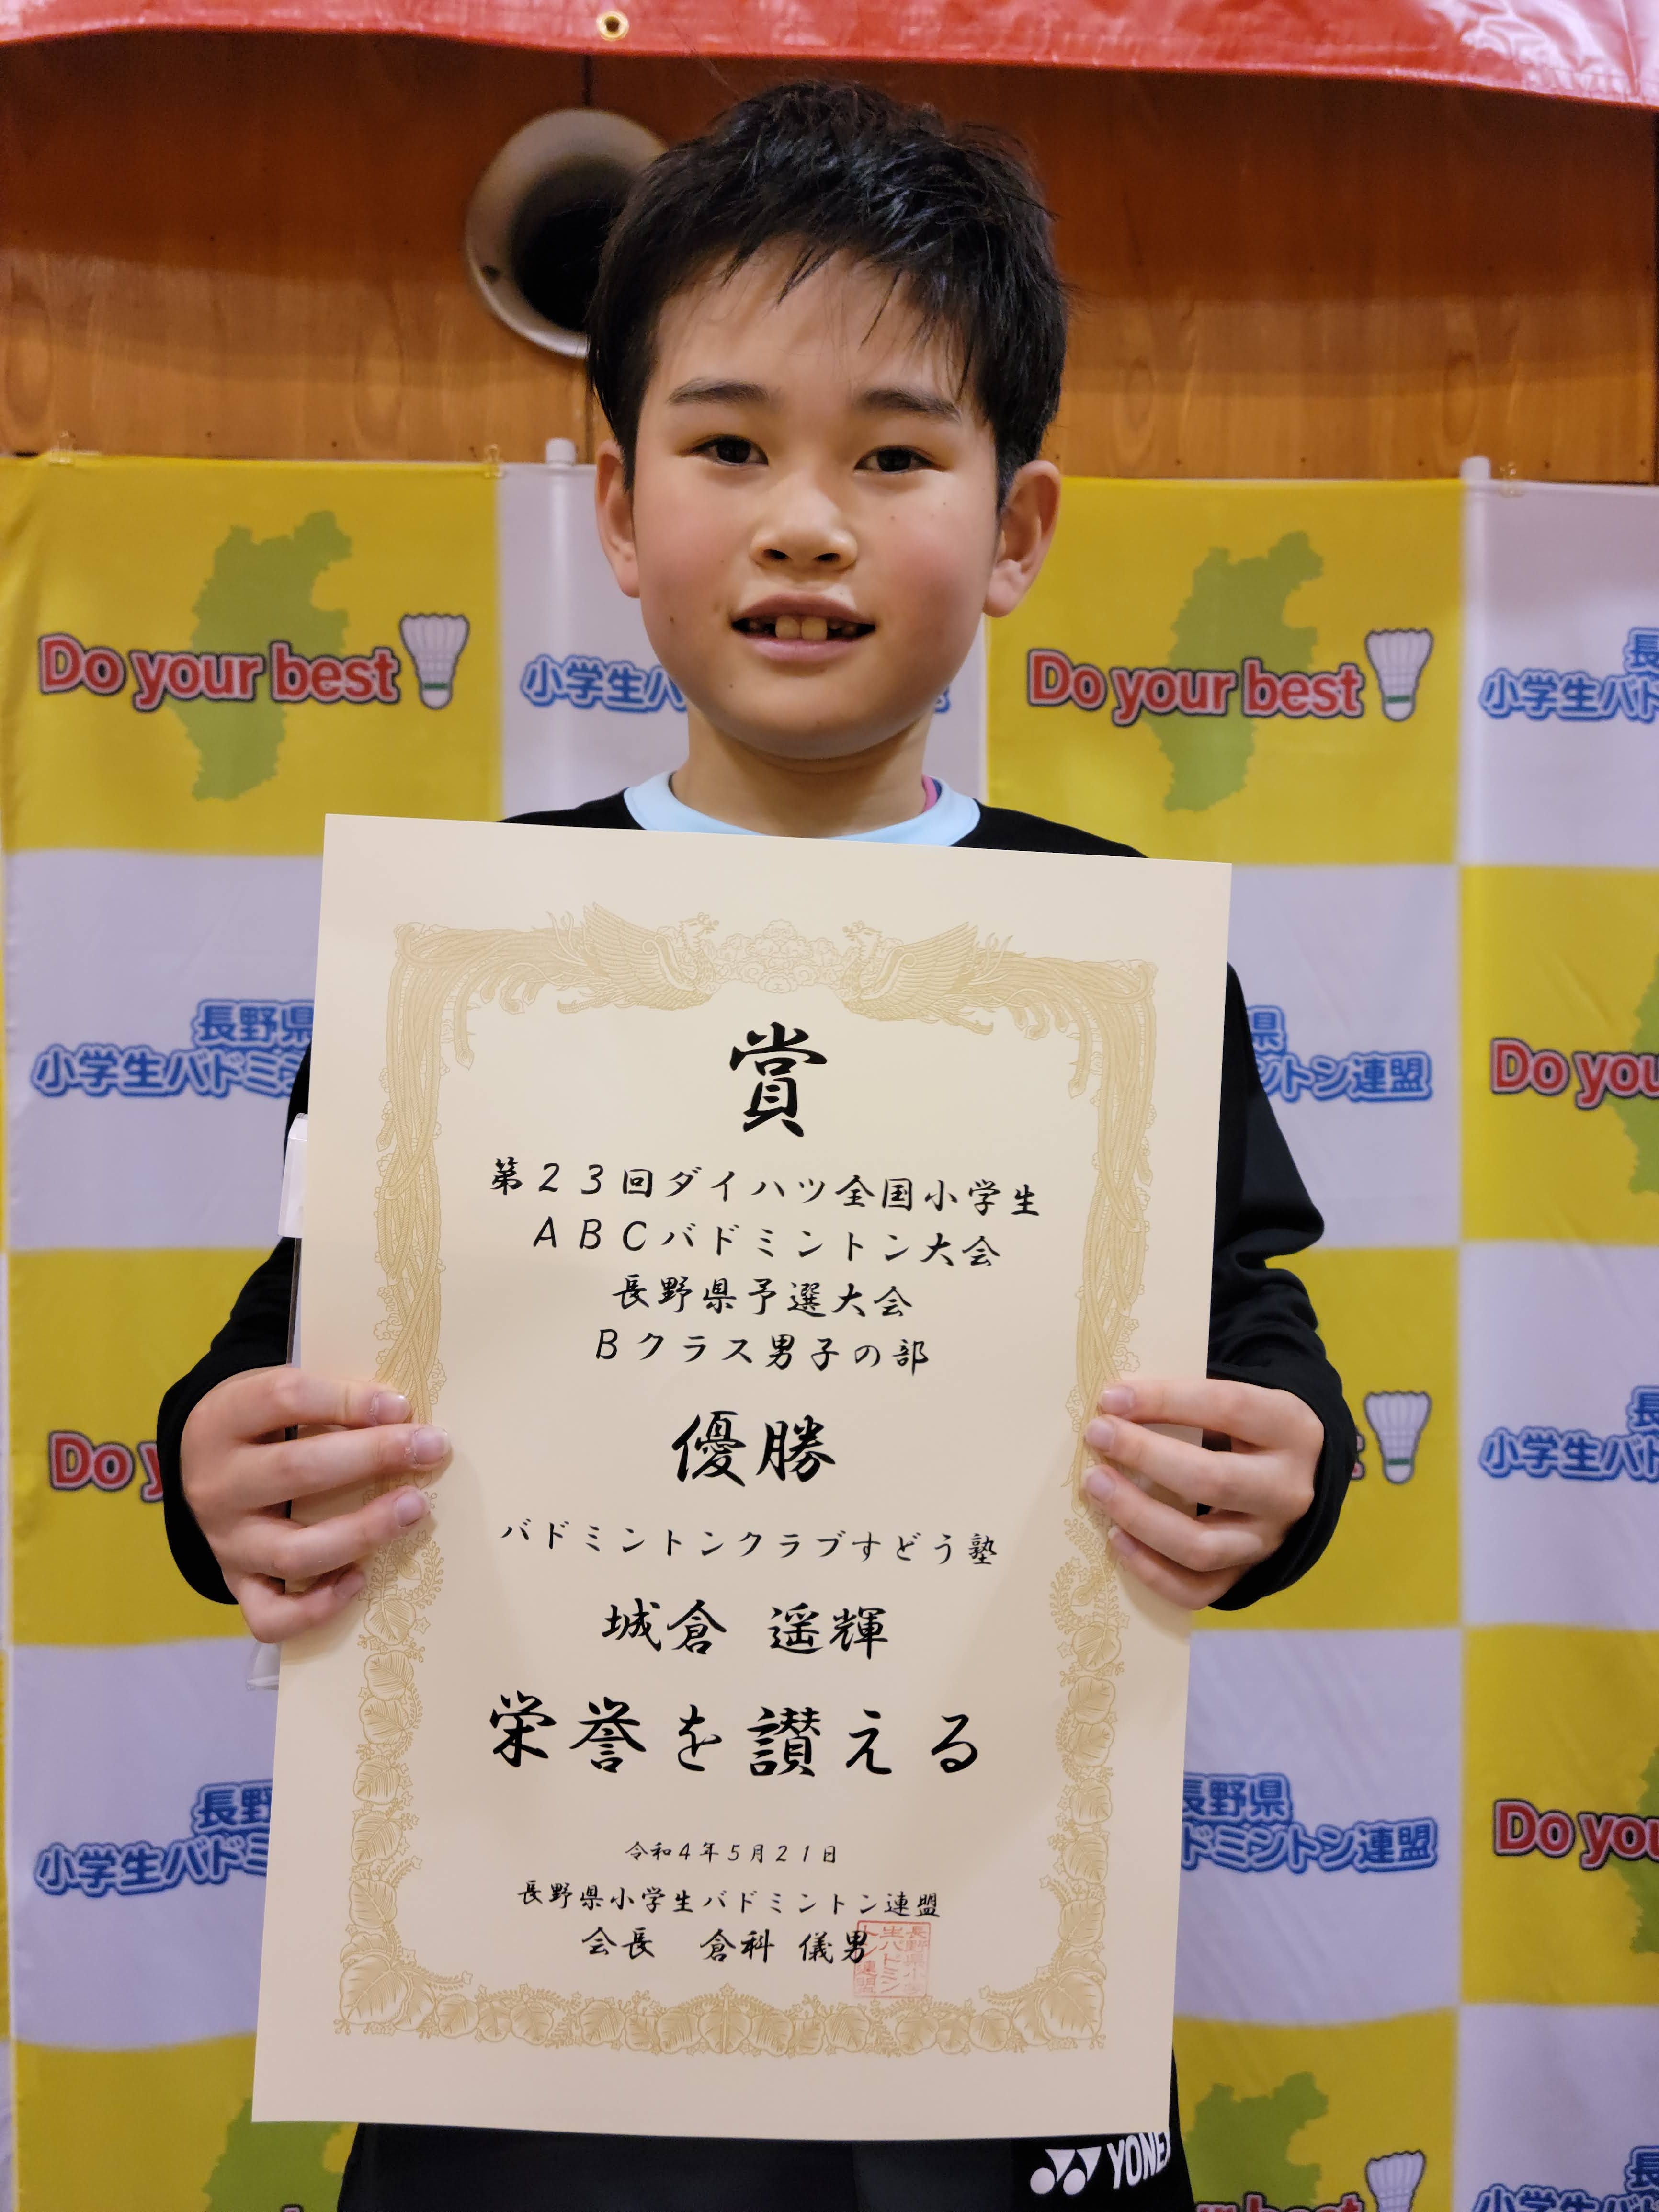 Do your best
小学生バ
Do your best
長
小学生バド
賞
第23回ダイハツ全国小学生
ABCバドミントン大会
長野県予選大会
Bクラス男子の部
優勝
バドミントンクラブすどう塾
城倉 遥輝
栄誉を讃える
令和4年5月21日
長野県小学生バドミントン連盟
会長 倉科 儀男
長野県小学生バドミントン連盟
長野県
小学生バドミ
県
ントン連盟
Do you
Do y
長
小学生バド
長野
小学生バドミ
長野県
ドミントン連盟
Do you
YONEX